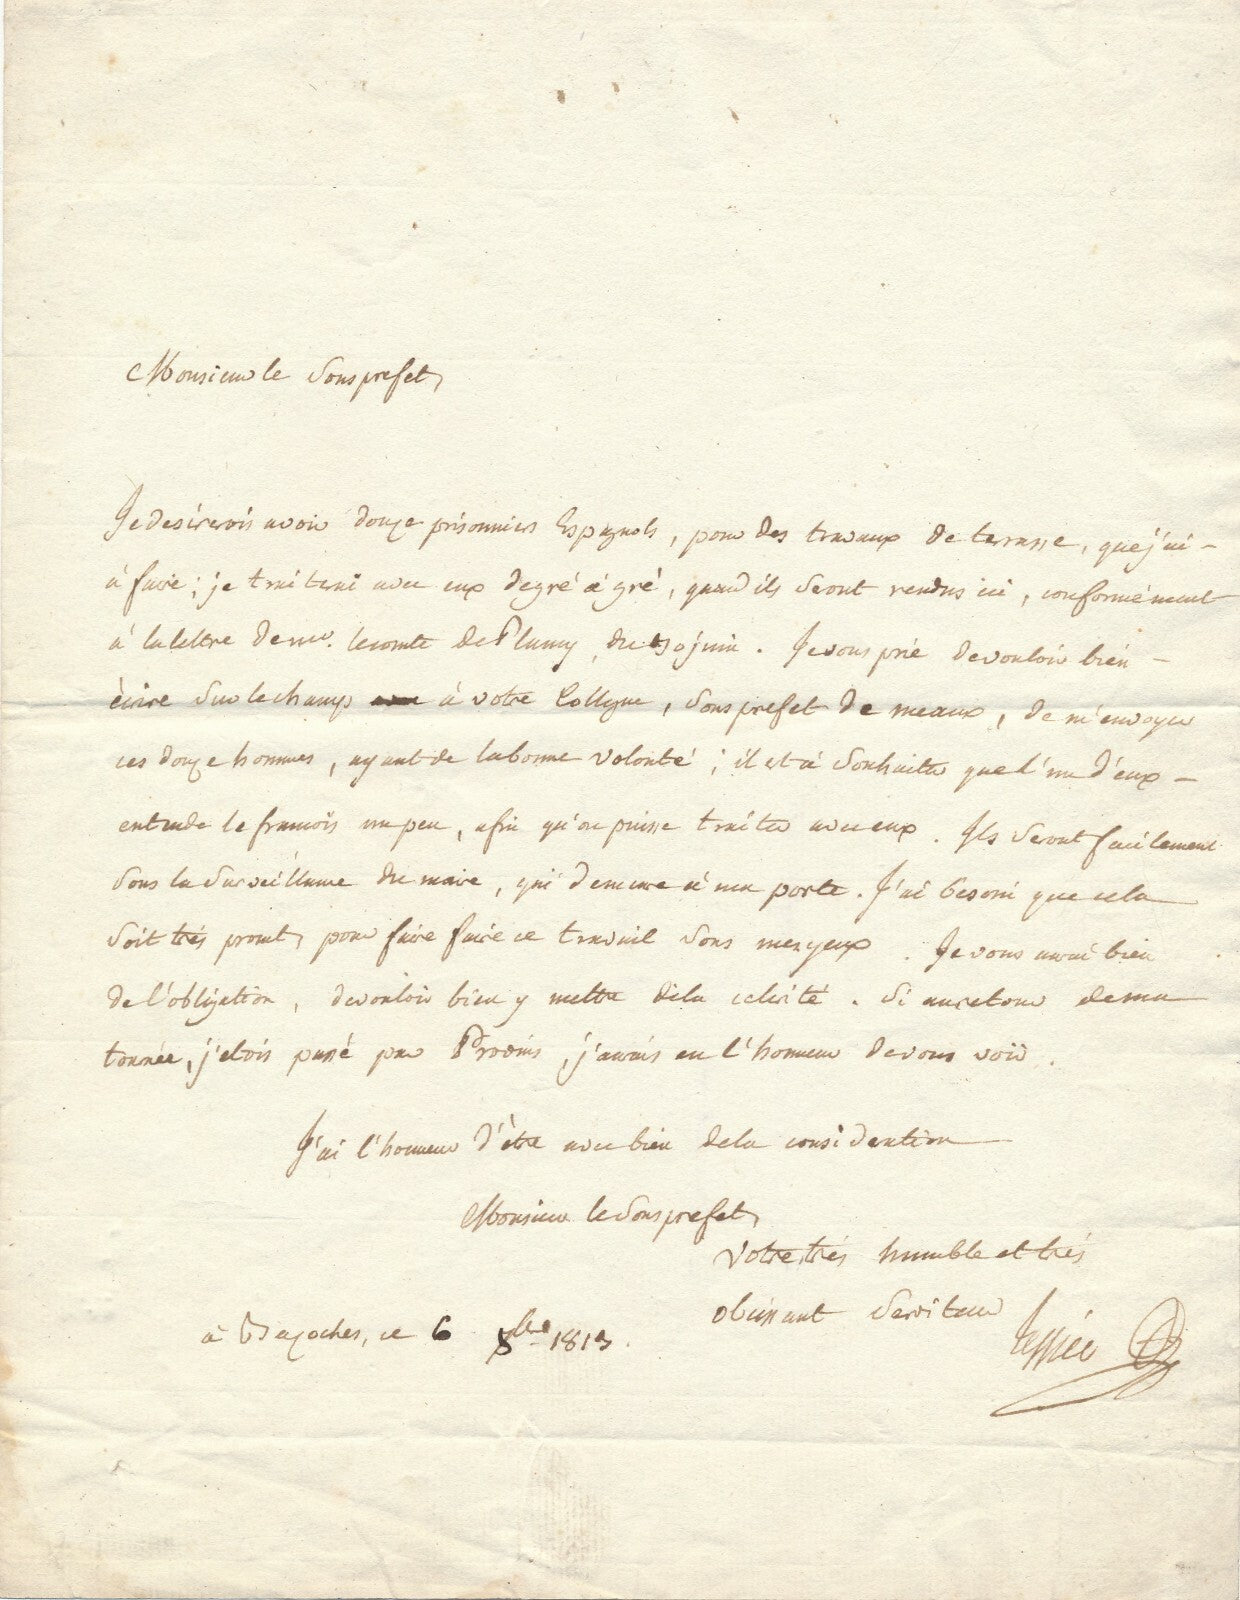 Monsieur le Sousprefet,
Je desirerois avoir douze prisonniers Espagnols, pour des travaux de terrasse, que j'ai
à faire; je traiterai avec eux de gré à gré, quand ils seront rendus ici, conformément
à la lettre de mr. lecomte de Plancy, du 30 juin. Je vous prie de vouloir bien
écrire sur le champ à votre Collegue, Sousprefet de meaux, de m'envoyer
ces douze hommes, ayant de la bonne volonté; il est à Souhaiter que l'un d'eux
entende le francois un peu, afin qu'on puisse traiter avec eux. Ils seront facilement
Sous la Surveillance du maire, qui demeure à ma porte. J'ai besoin que cela
Soit très promt, pour faire faire ce travail Sous mes yeux. Je vous aurai bien
de l'obligation, de vouloir bien y mettre de la celerité. Si au retour de ma
tournée, j'etois passé par Provins, j'aurais eu l'honneur de vous voir.
J'ai l'honneur d'être avec bien de la consideration
Monsieur le Sousprefet,
Votre très humble et très
obeissant Serviteur
Tessier
à Bazoches, ce 6 8bre 1813.